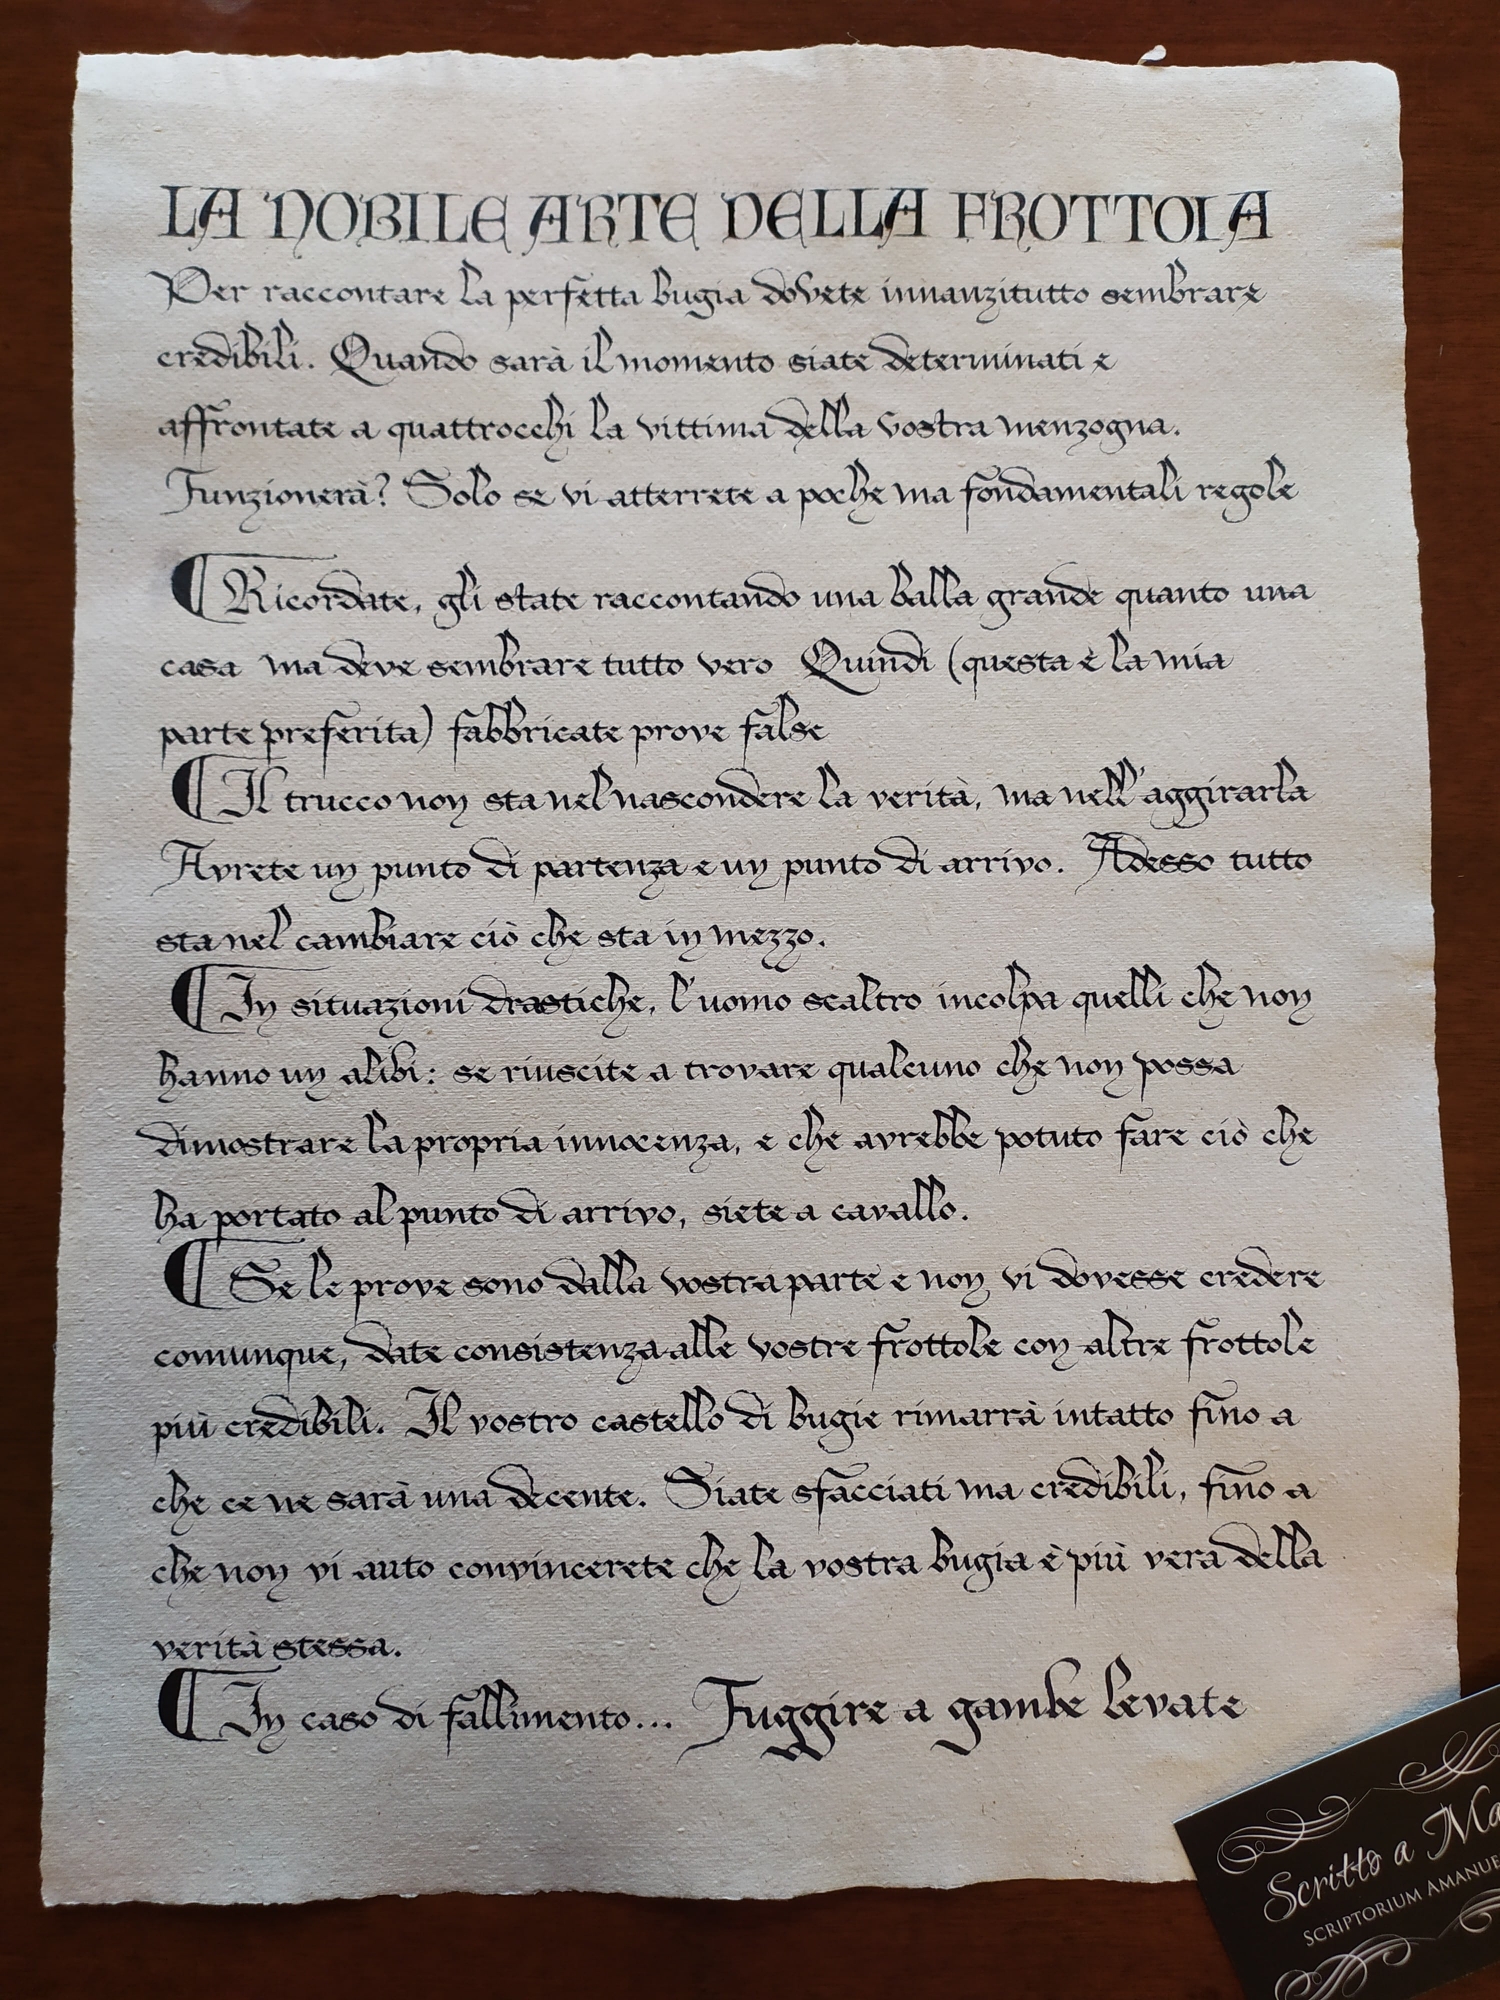 LA NOBILE ARTE DELLA FROTTOLA
Per raccontare la perfetta bugia dovete innanzitutto sembrare
credibili. Quando sarà il momento siate determinati e
affrontate a quattrocchi la vittima della vostra menzogna.
Funzionerà? Solo se vi atterrete a poche ma fondamentali regole
¶ Ricordate, gli state raccontando una balla grande quanto una
casa ma deve sembrare tutto vero Quindi (questa è la mia
parte preferita) fabbricate prove false
¶ Il trucco non sta nel nascondere la verità, ma nell'aggirarla
Avrete un punto di partenza e un punto di arrivo. Adesso tutto
sta nel cambiare ciò che sta in mezzo.
¶ In situazioni drastiche, l'uomo scaltro incolpa quelli che non
hanno un alibi: se riuscite a trovare qualcuno che non possa
dimostrare la propria innocenza, e che avrebbe potuto fare ciò che
ha portato al punto di arrivo, siete a cavallo.
¶ Se le prove sono dalla vostra parte e non vi dovesse credere
comunque, date consistenza alle vostre frottole con altre frottole
più credibili. Il vostro castello di bugie rimarrà intatto fino a
che ce ne sarà una decente. Siate sfacciati ma credibili, fino a
che non vi auto convincerete che la vostra bugia è più vera della
verità stessa.
¶ In caso di fallimento... Fuggire a gambe levate
Scritto a Ma
SCRIPTORIUM AMANUE